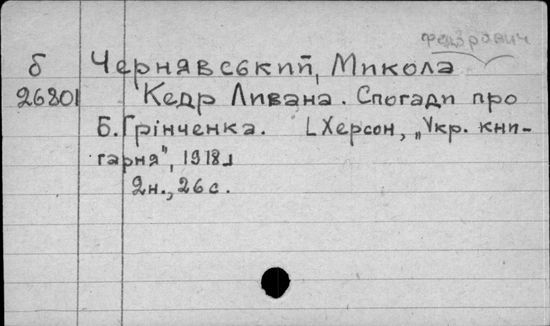 Федорович
б Чернявський, Микола
26801 Кедр Ливана. Спогади про
Б. Грінченка. [Херсон, „Укр. кни-
гарня", 1918]
2н., 26 с.